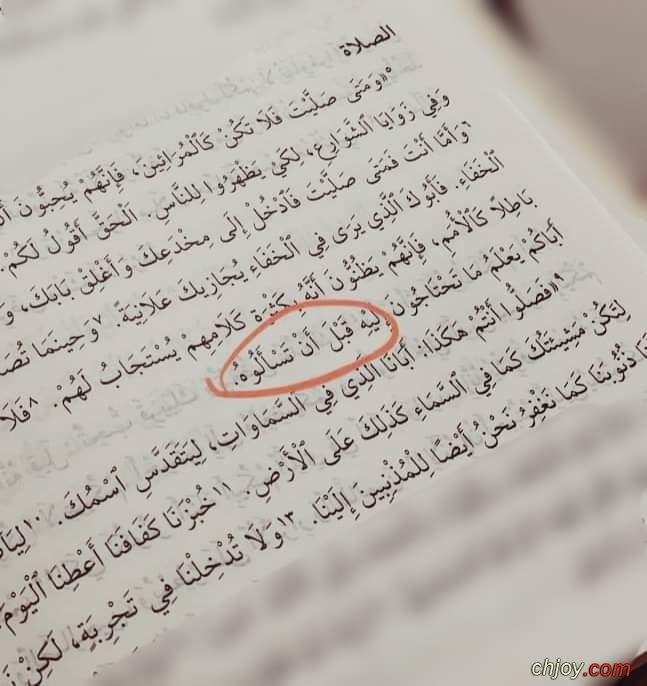 الصلاة
٥«وَمَتَى صَلَّيْتَ فَلَا تَكُنْ كَٱلْمُرَائِينَ، فَإِنَّهُمْ يُحِبُّونَ
وَفِي زَوَايَا ٱلشَّوَارِعِ، لِكَيْ يَظْهَرُوا لِلنَّاسِ. اَلْحَقَّ أَقُولُ لَكُمْ:
٦وَأَمَّا أَنْتَ فَمَتَى صَلَّيْتَ فَٱدْخُلْ إِلَى مِخْدَعِكَ وَأَغْلِقْ بَابَكَ،
ٱلْخَفَاءِ. فَأَبُوكَ ٱلَّذِي يَرَى فِي ٱلْخَفَاءِ يُجَازِيكَ عَلَانِيَةً. ٧وَحِينَمَا
بَاطِلًا كَٱلْأُمَمِ، فَإِنَّهُمْ يَظُنُّونَ أَنَّهُ بِكَثْرَةِ كَلَامِهِمْ يُسْتَجَابُ لَهُمْ. ٨فَلَا
أَبَاكُمْ يَعْلَمُ مَا تَحْتَاجُونَ إِلَيْهِ قَبْلَ أَنْ تَسْأَلُوهُ.
٩«فَصَلُّوا أَنْتُمْ هَكَذَا: أَبَانَا ٱلَّذِي فِي ٱلسَّمَاوَاتِ، لِيَتَقَدَّسِ ٱسْمُكَ. ١٠
لِتَكُنْ مَشِيئَتُكَ كَمَا فِي ٱلسَّمَاءِ كَذَلِكَ عَلَى ٱلْأَرْضِ. ١١خُبْزَنَا كَفَافَنَا أَعْطِنَا ٱلْيَوْمَ
ذُنُوبَنَا كَمَا نَغْفِرُ نَحْنُ أَيْضًا لِلْمُذْنِبِينَ إِلَيْنَا. ١٣وَلَا تُدْخِلْنَا فِي تَجْرِبَةٍ، لَكِنْ
chjoy.com